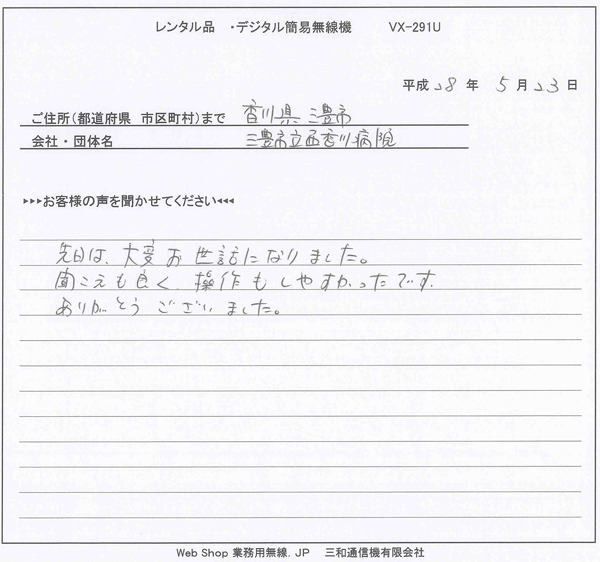 レンタル品 ・デジタル簡易無線機 VX-291U
平成 28 年 5 月 23 日
ご住所(都道府県 市区町村)まで 香川県 三豊市
会社・団体名 三豊市立西香川病院
▸▸▸お客様の声を聞かせてください◂◂◂
先日は、大変お世話になりました。
聞こえも良く、操作もしやすかったです。
ありがとうございました。
Web Shop 業務用無線.JP 三和通信機有限会社